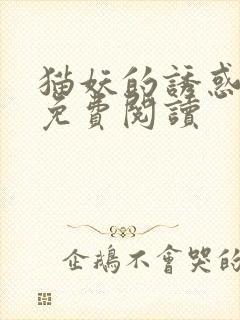 猫妖的誘惑
免費閱讀
企鵝不會哭的